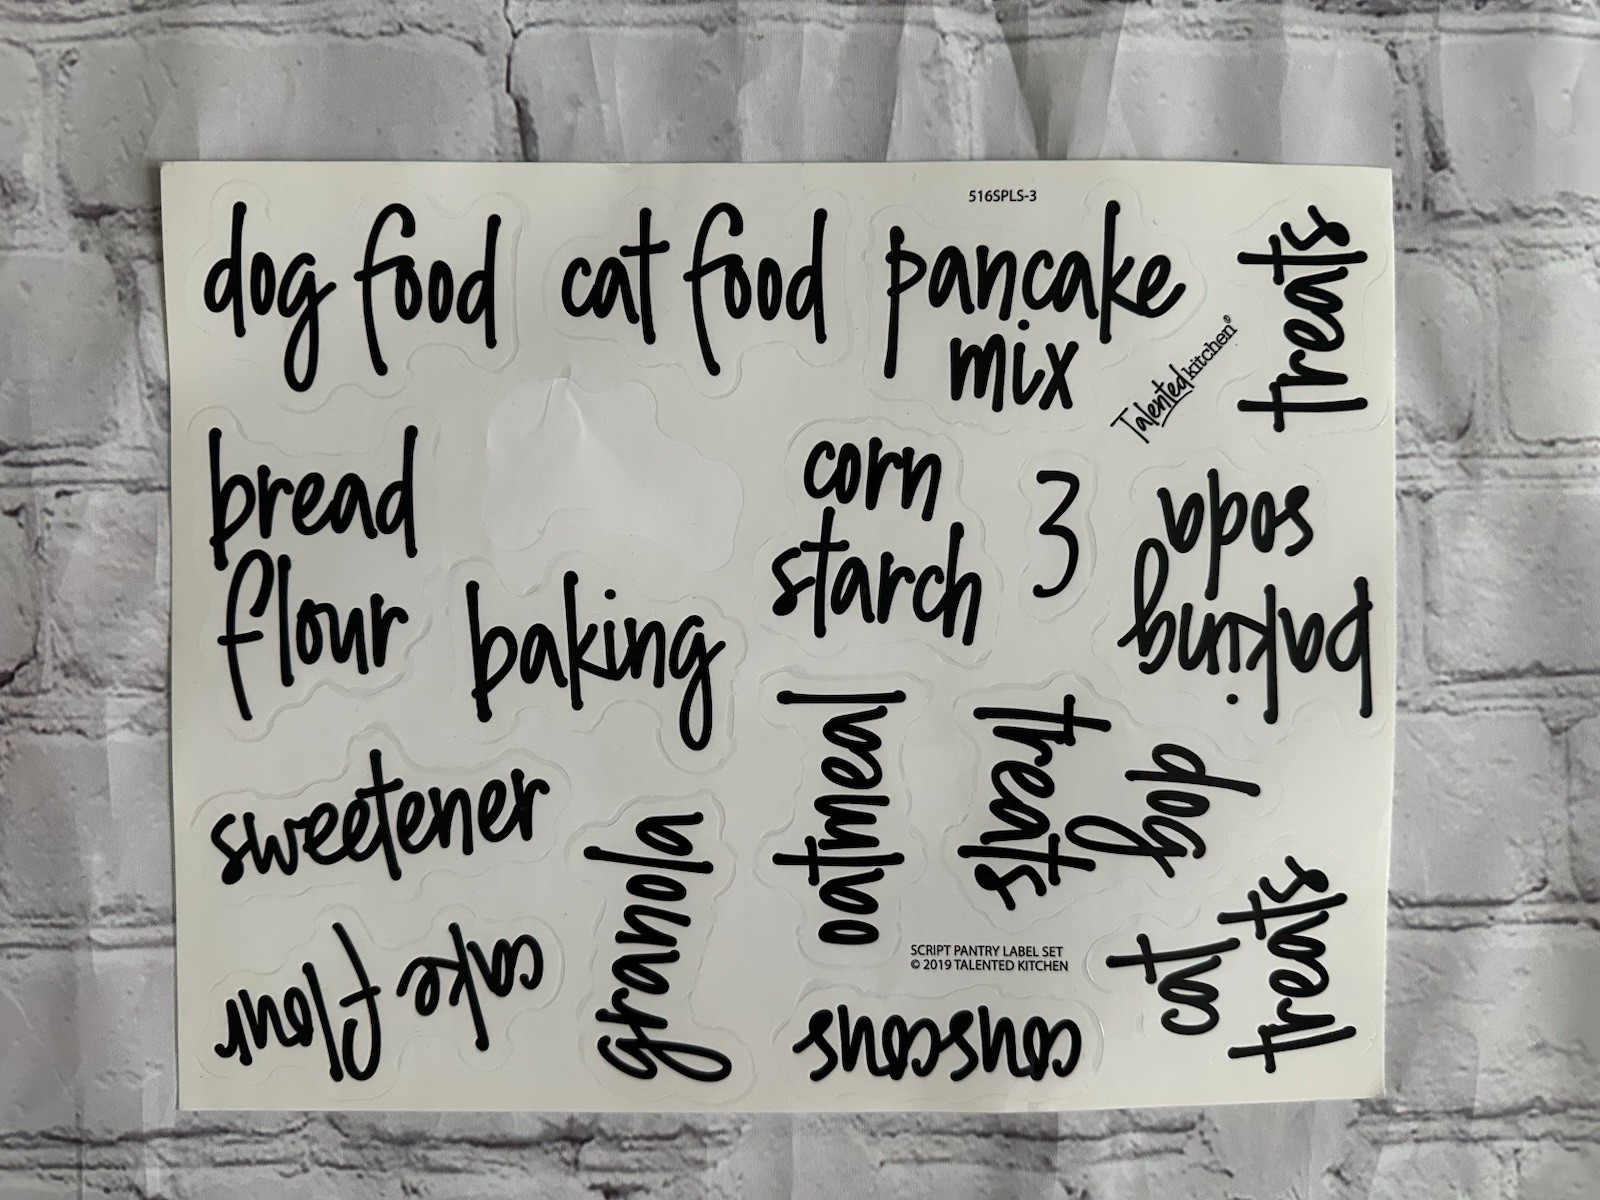 516SPLS-3
dog food
cat food
pancake
mix
treats
Talented kitchen®
bread
flour
corn
starch
3
baking
soda
baking
sweetener
granola
oatmeal
dog
treats
cat
treats
cake flour
SCRIPT PANTRY LABEL SET
© 2019 TALENTED KITCHEN
couscous